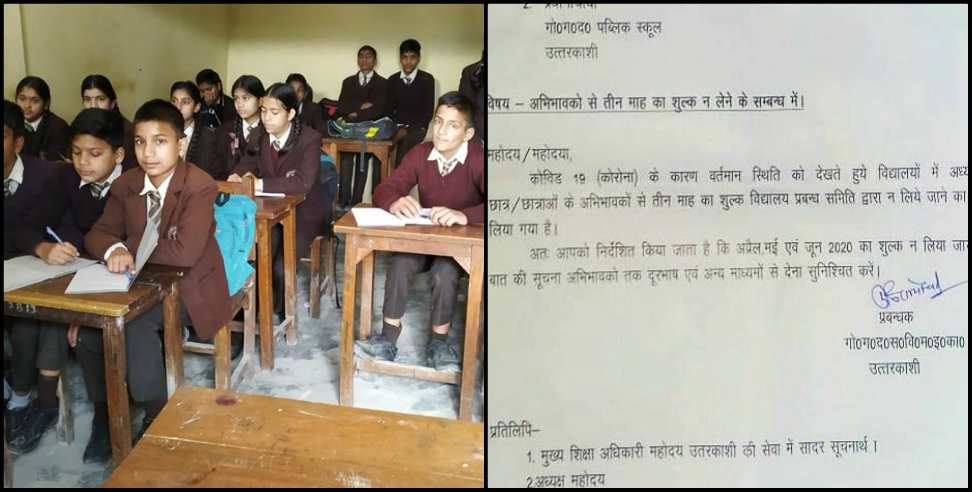 गो0ग0द0 पब्लिक स्कूल
उत्तरकाशी
विषय – अभिभावको से तीन माह का शुल्क न लेने के सम्बन्ध में।
महोदय/महोदया,
कोविड 19 (कोरोना) के कारण वर्तमान स्थिति को देखते हुये विद्यालयों में
छात्र/छात्राओं के अभिभावकों से तीन माह का शुल्क विद्यालय प्रबन्ध समिति द्वारा न लिये जाने का
लिया गया है।
अतः आपको निर्देशित किया जाता है कि अप्रैल,मई एवं जून 2020 का शुल्क न लिया
बात की सूचना अभिभावकों तक दूरभाष एवं अन्य माध्यमों से देना सुनिश्चित करें।
प्रबन्धक
गो0ग0द0स0वि0म0इ0का0
उत्तरकाशी
प्रतिलिपि–
1. मुख्य शिक्षा अधिकारी महोदय उतरकाशी की सेवा में सादर सूचनार्थ ।
2.अध्यक्ष महोदय